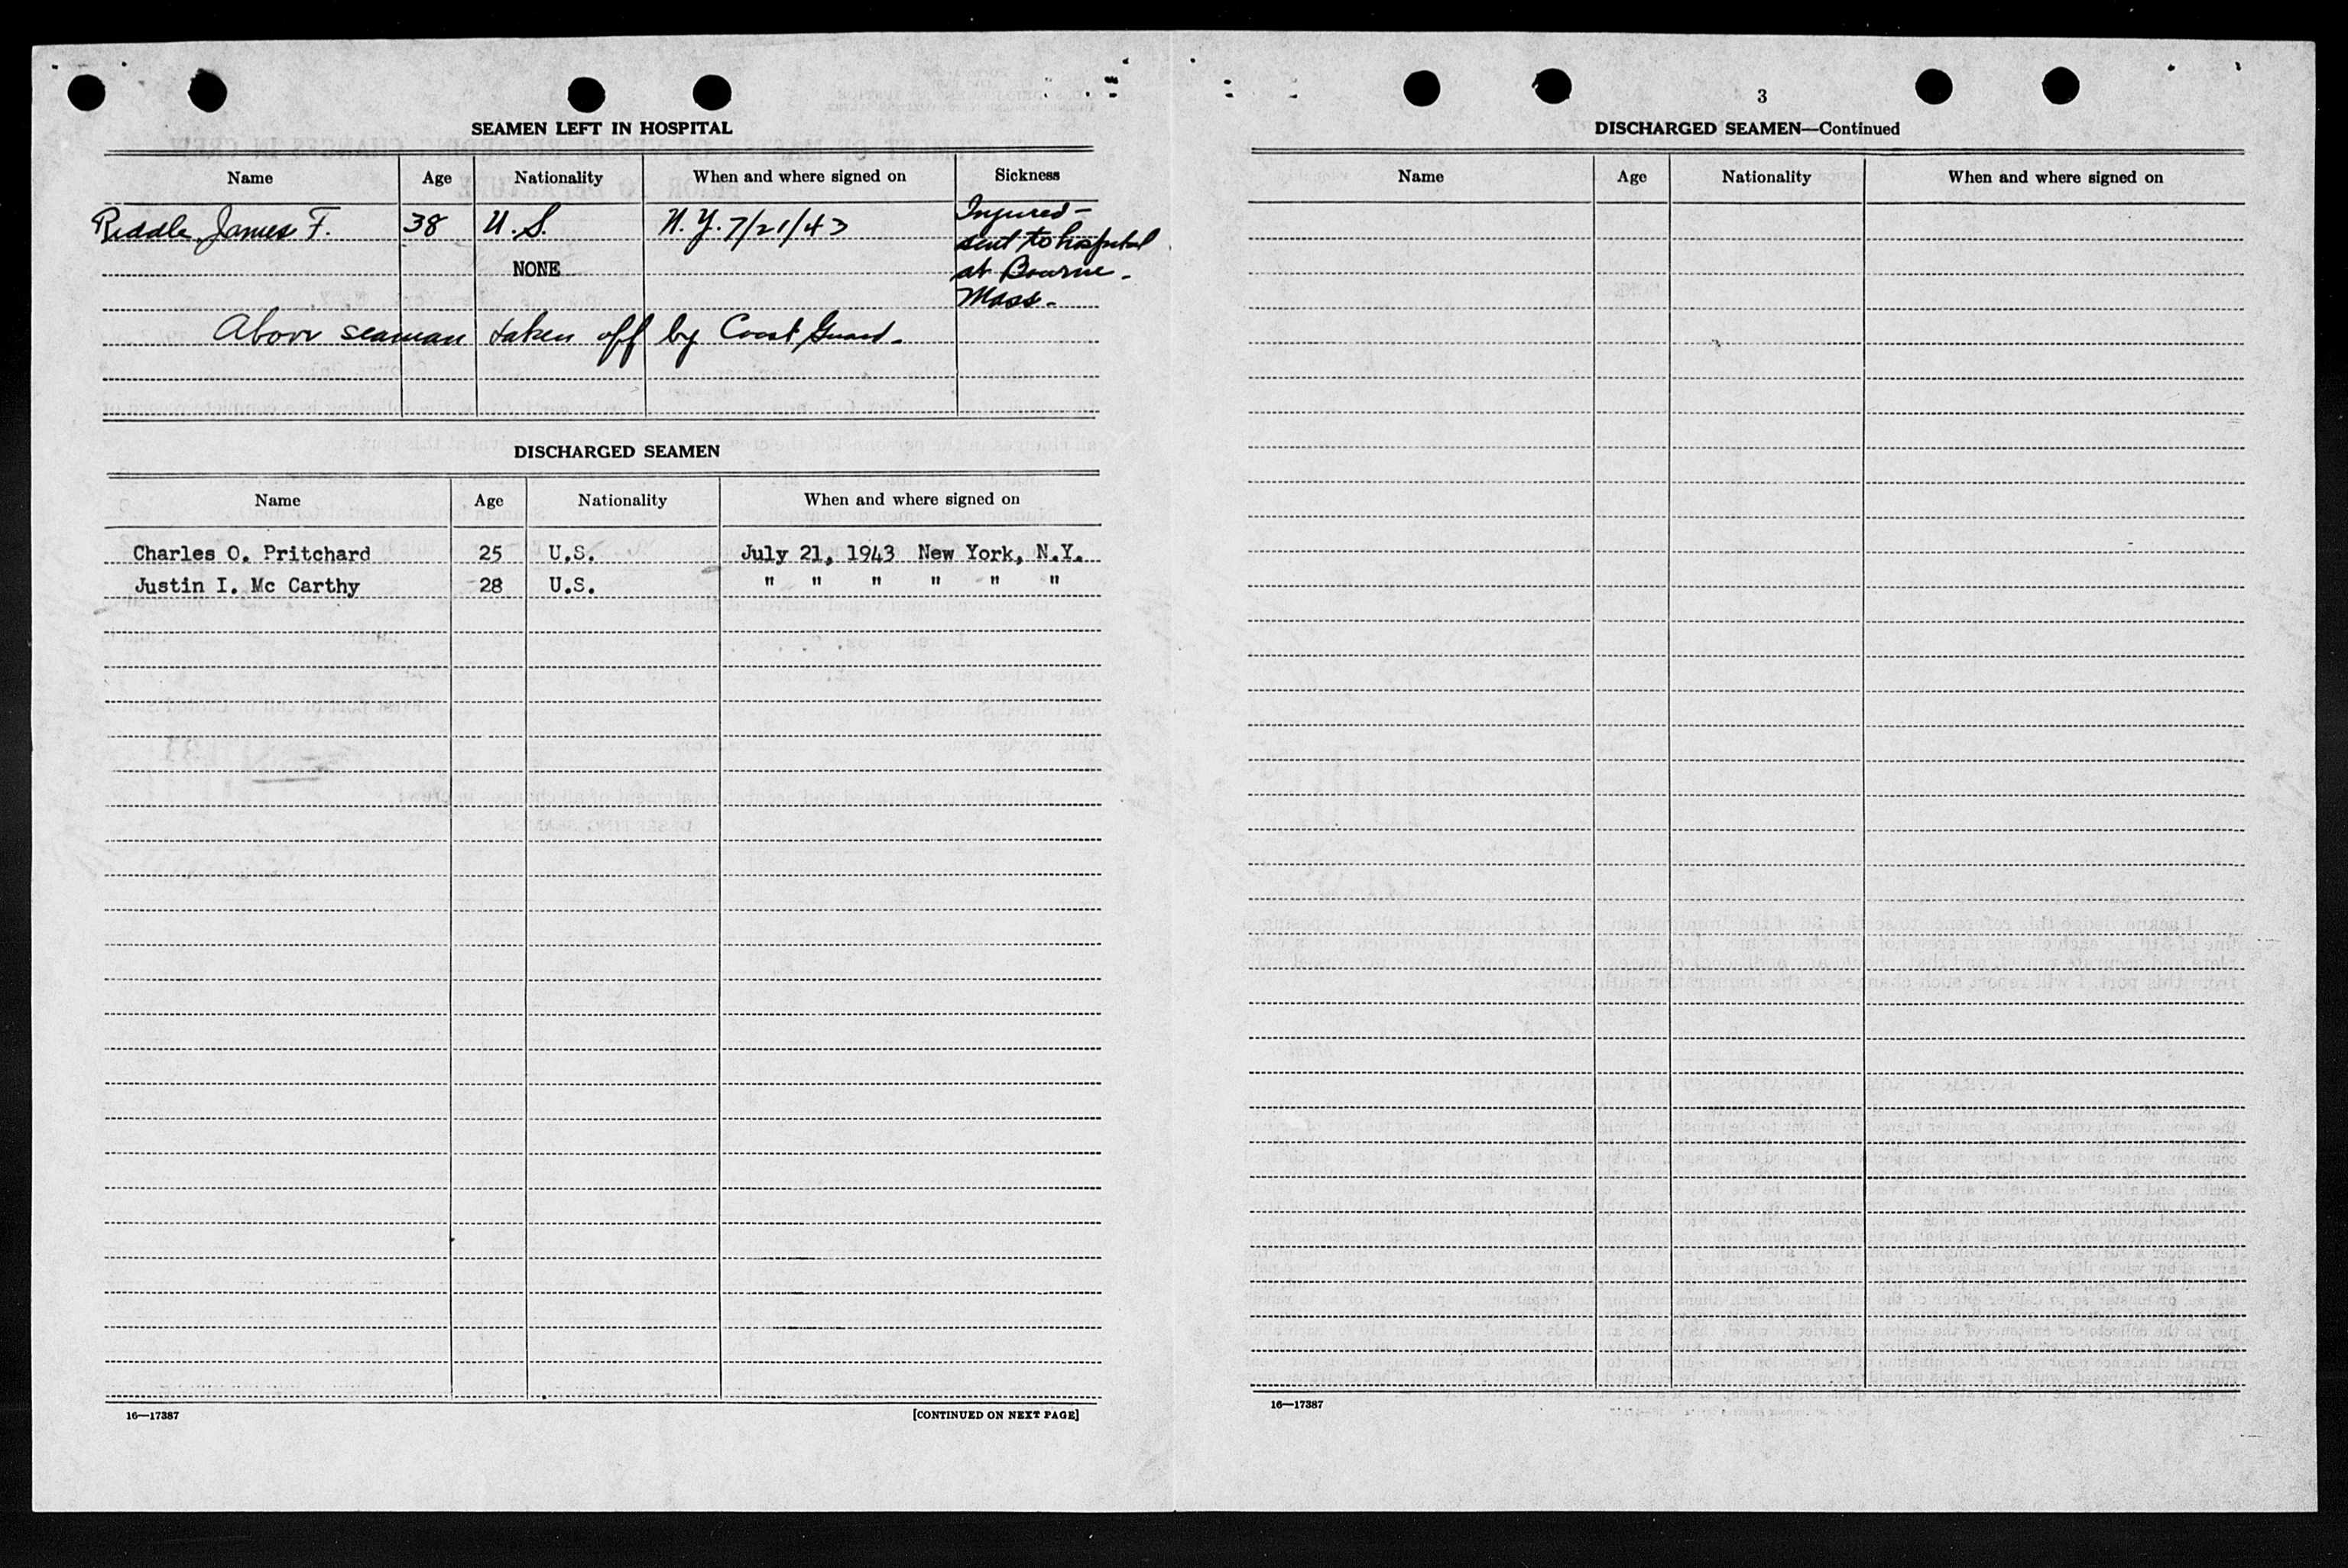 SEAMEN LEFT IN HOSPITAL
Name Age Nationality When and where signed on Sickness
Riddle, James F. 38 U.S. N.Y. 7/21/43 Injured -
sent to hospital
NONE at Bourne -
Mass -
Above seaman taken off by Coast Guard -
DISCHARGED SEAMEN
Name Age Nationality When and where signed on
Charles O. Pritchard 25 U.S. July 21, 1943 New York, N.Y.
Justin I. Mc Carthy 28 U.S. " " " " " "
16—17387 [CONTINUED ON NEXT PAGE]
3
DISCHARGED SEAMEN—Continued
Name Age Nationality When and where signed on
16—17387